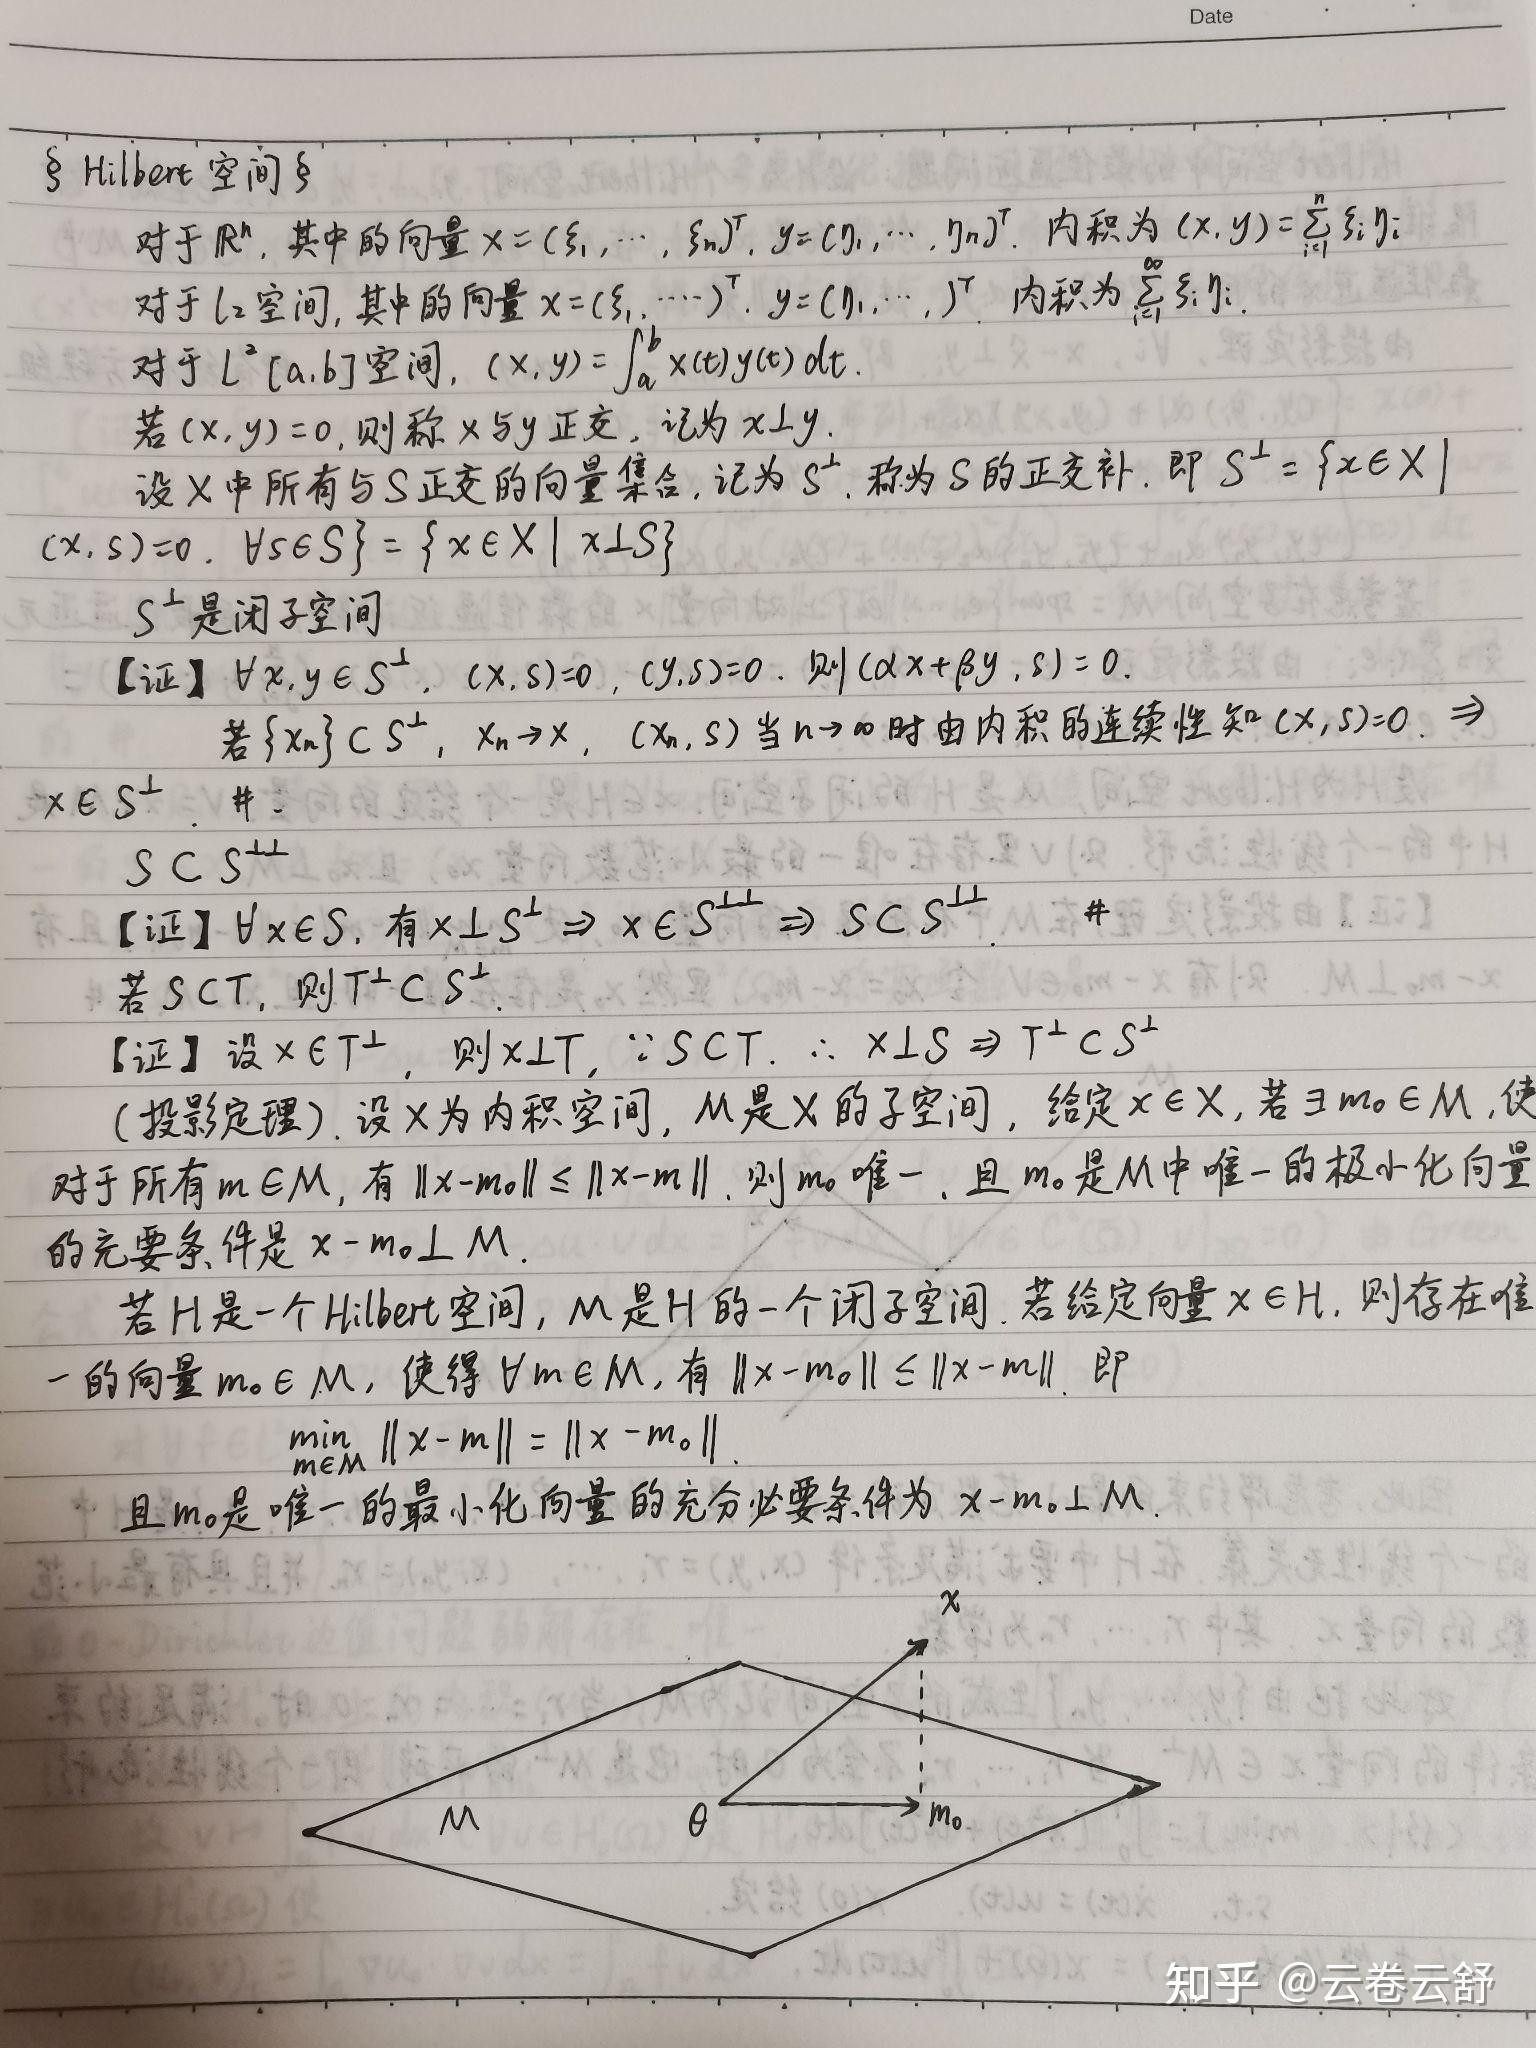 Date
§ Hilbert 空间 §
对于 ℝⁿ, 其中的向量 x = (ξ₁, ⋯, ξₙ)ᵀ, y = (η₁, ⋯, ηₙ)ᵀ. 内积为 (x, y) = ∑ᵢ₌₁ⁿ ξᵢηᵢ
对于 l₂ 空间, 其中的向量 x = (ξ₁, ⋯⋯)ᵀ. y = (η₁, ⋯, )ᵀ. 内积为 ∑ᵢ₌₁^∞ ξᵢηᵢ.
对于 L² [a,b] 空间, (x, y) = ∫ₐᵇ x(t)y(t) dt.
若 (x, y) = 0, 则称 x 与 y 正交, 记为 x⊥y.
设 X 中所有与 S 正交的向量集合, 记为 S^⊥, 称为 S 的正交补. 即 S^⊥ = {x ∈ X |
(x, s) = 0. ∀s∈S} = {x ∈ X | x⊥S}
S^⊥ 是闭子空间
【证】∀x, y ∈ S^⊥, (x, s)=0, (y, s)=0. 则 (αx+βy, s) = 0.
若 {xₙ} ⊂ S^⊥, xₙ→x, (xₙ, s) 当 n→∞ 时由内积的连续性知 (x, s)=0. ⇒
x ∈ S^⊥. #.
S ⊂ S^⊥⊥
【证】∀x∈S, 有 x⊥S^⊥ ⇒ x∈S^⊥⊥ ⇒ S⊂S^⊥⊥. #
若 S⊂T, 则 T^⊥ ⊂ S^⊥.
【证】设 x∈T^⊥, 则 x⊥T, ∵ S⊂T. ∴ x⊥S ⇒ T^⊥ ⊂ S^⊥
(投影定理). 设 X 为内积空间, M 是 X 的子空间, 给定 x∈X, 若 ∃ m₀∈M, 使
对于所有 m∈M, 有 ‖x-m₀‖ ≤ ‖x-m‖, 则 m₀ 唯一, 且 m₀ 是 M 中唯一的极小化向量
的充要条件是 x-m₀⊥M.
若 H 是一个 Hilbert 空间, M 是 H 的一个闭子空间. 若给定向量 x∈H, 则存在唯
一的向量 m₀∈M, 使得 ∀m∈M, 有 ‖x-m₀‖ ≤ ‖x-m‖. 即
min_{m∈M} ‖x-m‖ = ‖x-m₀‖.
且 m₀ 是唯一的最小化向量的充分必要条件为 x-m₀⊥M.
x
M θ m₀
知乎 @云卷云舒